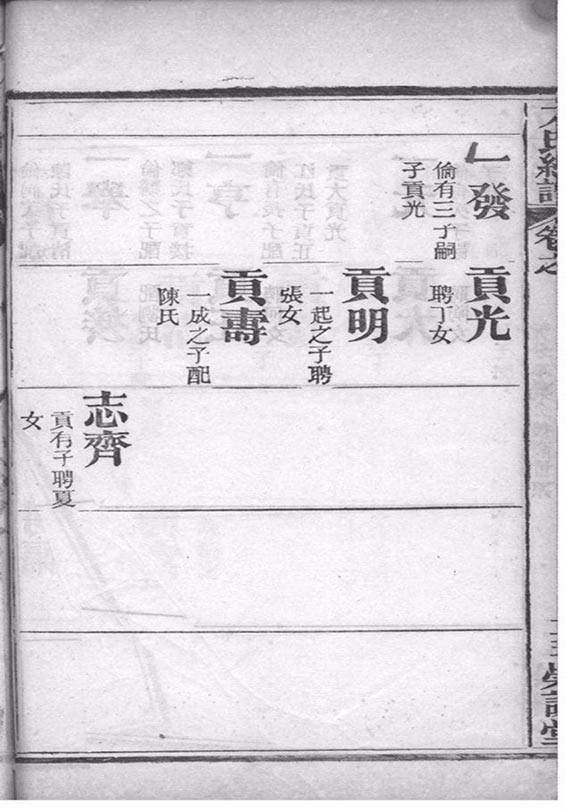 氏總譜
卷之
一發
倫有三子嗣
子貢光
貢光
聘丁女
貢明
一起之子聘
張女
貢壽
一成之子配
陳氏
志齊
貢有子聘夏
女